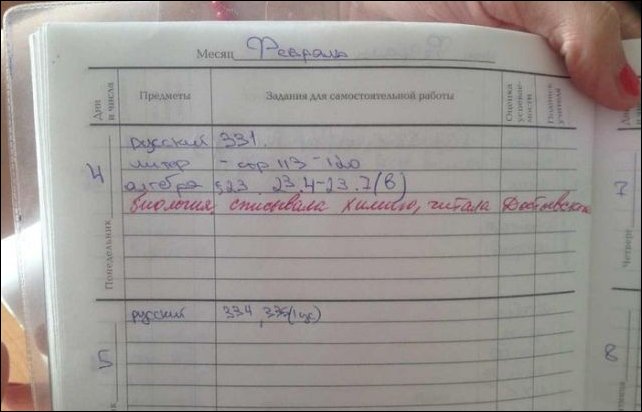 Месяц Февраль
Дни и числа Предметы Задания для самостоятельной работы Оценка успеваемости Подпись учителя
4
Понедельник
русский 331.
литер - стр 113-120
алгебра §23. 23.4-23.7(в)
биология, списывала химию, читала Достоевского
5
русский 334, 335(1ус)
7
Четверг
8